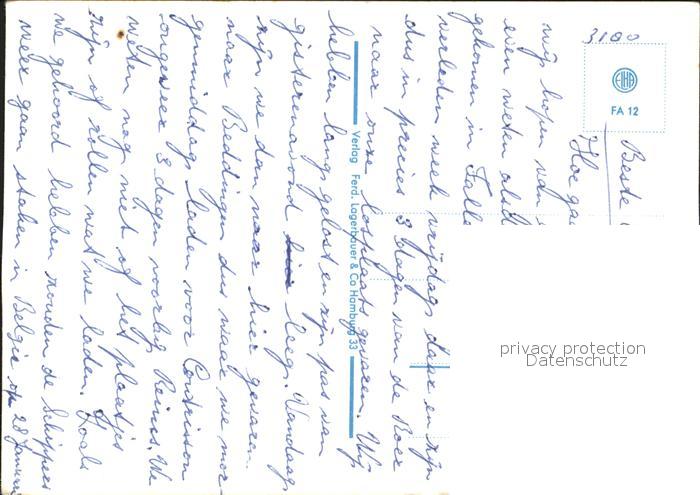 3180
Beste
Hoe gaa
wij hopen van
even weten als
gekomen in Falle
verleden week vrijdags daar en zijn
dus in precies 3 dagen van de Roer
naar onze losplaats gevaren. Wij
hebben lang gelost en zijn pas van
gisterenavond leeg. Vandaag
zijn we dan naar hier gevaren
naar Beddingen dus waar we mor-
genmiddag laden voor
ongeveer 3 dagen voorbij Reims. We
weten nog niet of het plaatsje
zijn of zullen wat we laden. Zoals
we gehoord hebben zouden de Schippers
weer gaan staken in Belgie op 28 Januari
EHA
FA 12
Verlag Ferd. Lagerbauer & Co Hamburg 33
privacy protection
Datenschutz